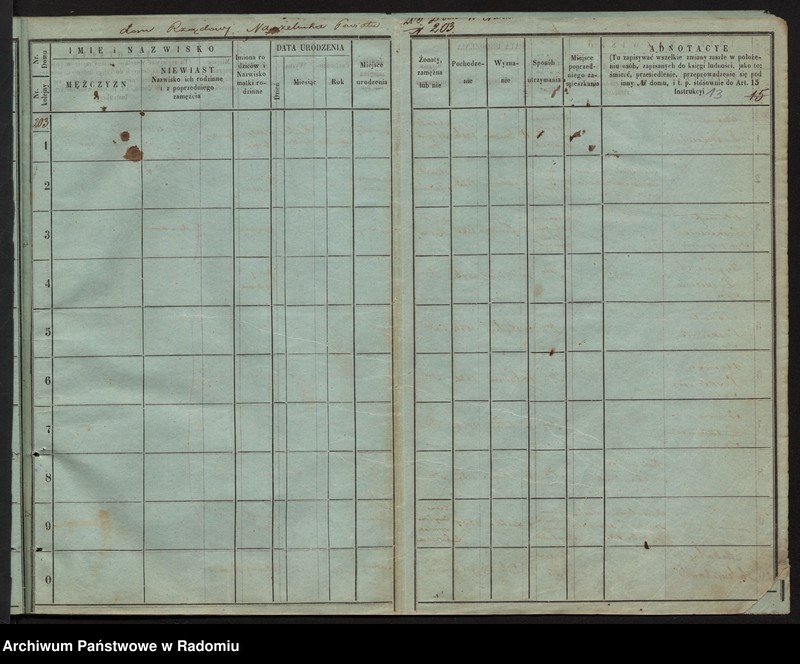 dom Rządowy Naczelnika Powiatu
203
Nr. Domu
Nr. kolejny
IMIĘ i NAZWISKO
MĘŻCZYZN
NIEWIAST
Nazwisko ich rodzinne
i z poprzedniego
zamęzcia
Imiona ro
dziców i
Nazwisko
matki ro-
dzinne
DATA URODZENIA
Dzień
Miesiąc
Rok
Miejsce
urodzenia
Żonaty,
zamężna
lub nie
Pochodze-
nie
Wyzna-
nie
Sposób
utrzymania
Miejsce
poprzed-
niego za-
mieszkania
ADNOTACYE
(Tu zapisywać wszelkie zmiany zaszłe w położe-
niu osób, zapisanych do księgi ludności, jako to:
śmierć, przesiedlenie, przeprowadzenie się pod
inny № domu, i t. p. stósownie do Art. 15
Instrukcyi
13
45
203
1
2
3
4
5
6
7
8
9
0
Archiwum Państwowe w Radomiu